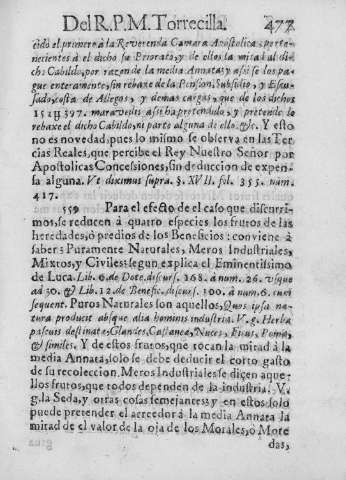 Del R. P. M. Torrecilla. 477
cido el primero à la Reverenda Camara Apostolica, perte-
necientes à el dicho su Priorato, y de ellos la mitad al di-
cho Cabildo, por razon de la media Annata; y assi se los pa-
gue enteramente, sin rebaxe de la Pension, Subsidio, y Escu-
sado, costa de Aliegos, y demas cargas, que de los dichos
1511397. maravedis assi ha pretendido, y pretende lo
rebaxe el dicho Cabildo, ni parte alguna di ello. &c. Y esto
no es novedad, pues lo mismo se observa en las Ter-
cias Reales, que percibe el Rey Nuestro Señor por
Apostolicas Concessiones, sin deduccion de expen-
sa alguna. Vt diximus supra. §. XVII. fol. 355. num.
417.
559 Para el efecto de el caso que discurri-
mos, se reducen à quatro especies los frutos de las
heredades, ò predios de los Beneficios: conviene à
saber: Puramente Naturales, Meros Industriales,
Mixtos, y Civiles: segun explica el Eminentissimo
de Luca. Lib. 6. de Dote, discurs. 168. à num. 26. vsque
ad 30. & Lib. 12. de Benefic. discurs. 100. à num. 6. cum
sequent. Puros Naturales son aquellos, Quos ipsa na-
tura producit absque alia hominis industria. V. g. Herba
pascuis destinata, Glandes, Castanea, Nuces, Ficus, Poma,
& similes. Y de estos frutos, que tocan la mitad à la
media Annata, solo se debe deducir el corto gasto
de su recoleccion. Meros Industriales se dicen aque-
llos frutos, que todos dependen de la industria. V.
g. la Seda, y otras cosas semejantes; y en estos solo
puede pretender el acreedor à la media Annata la
mitad de el valor de la oja de los Morales, ò More
das,